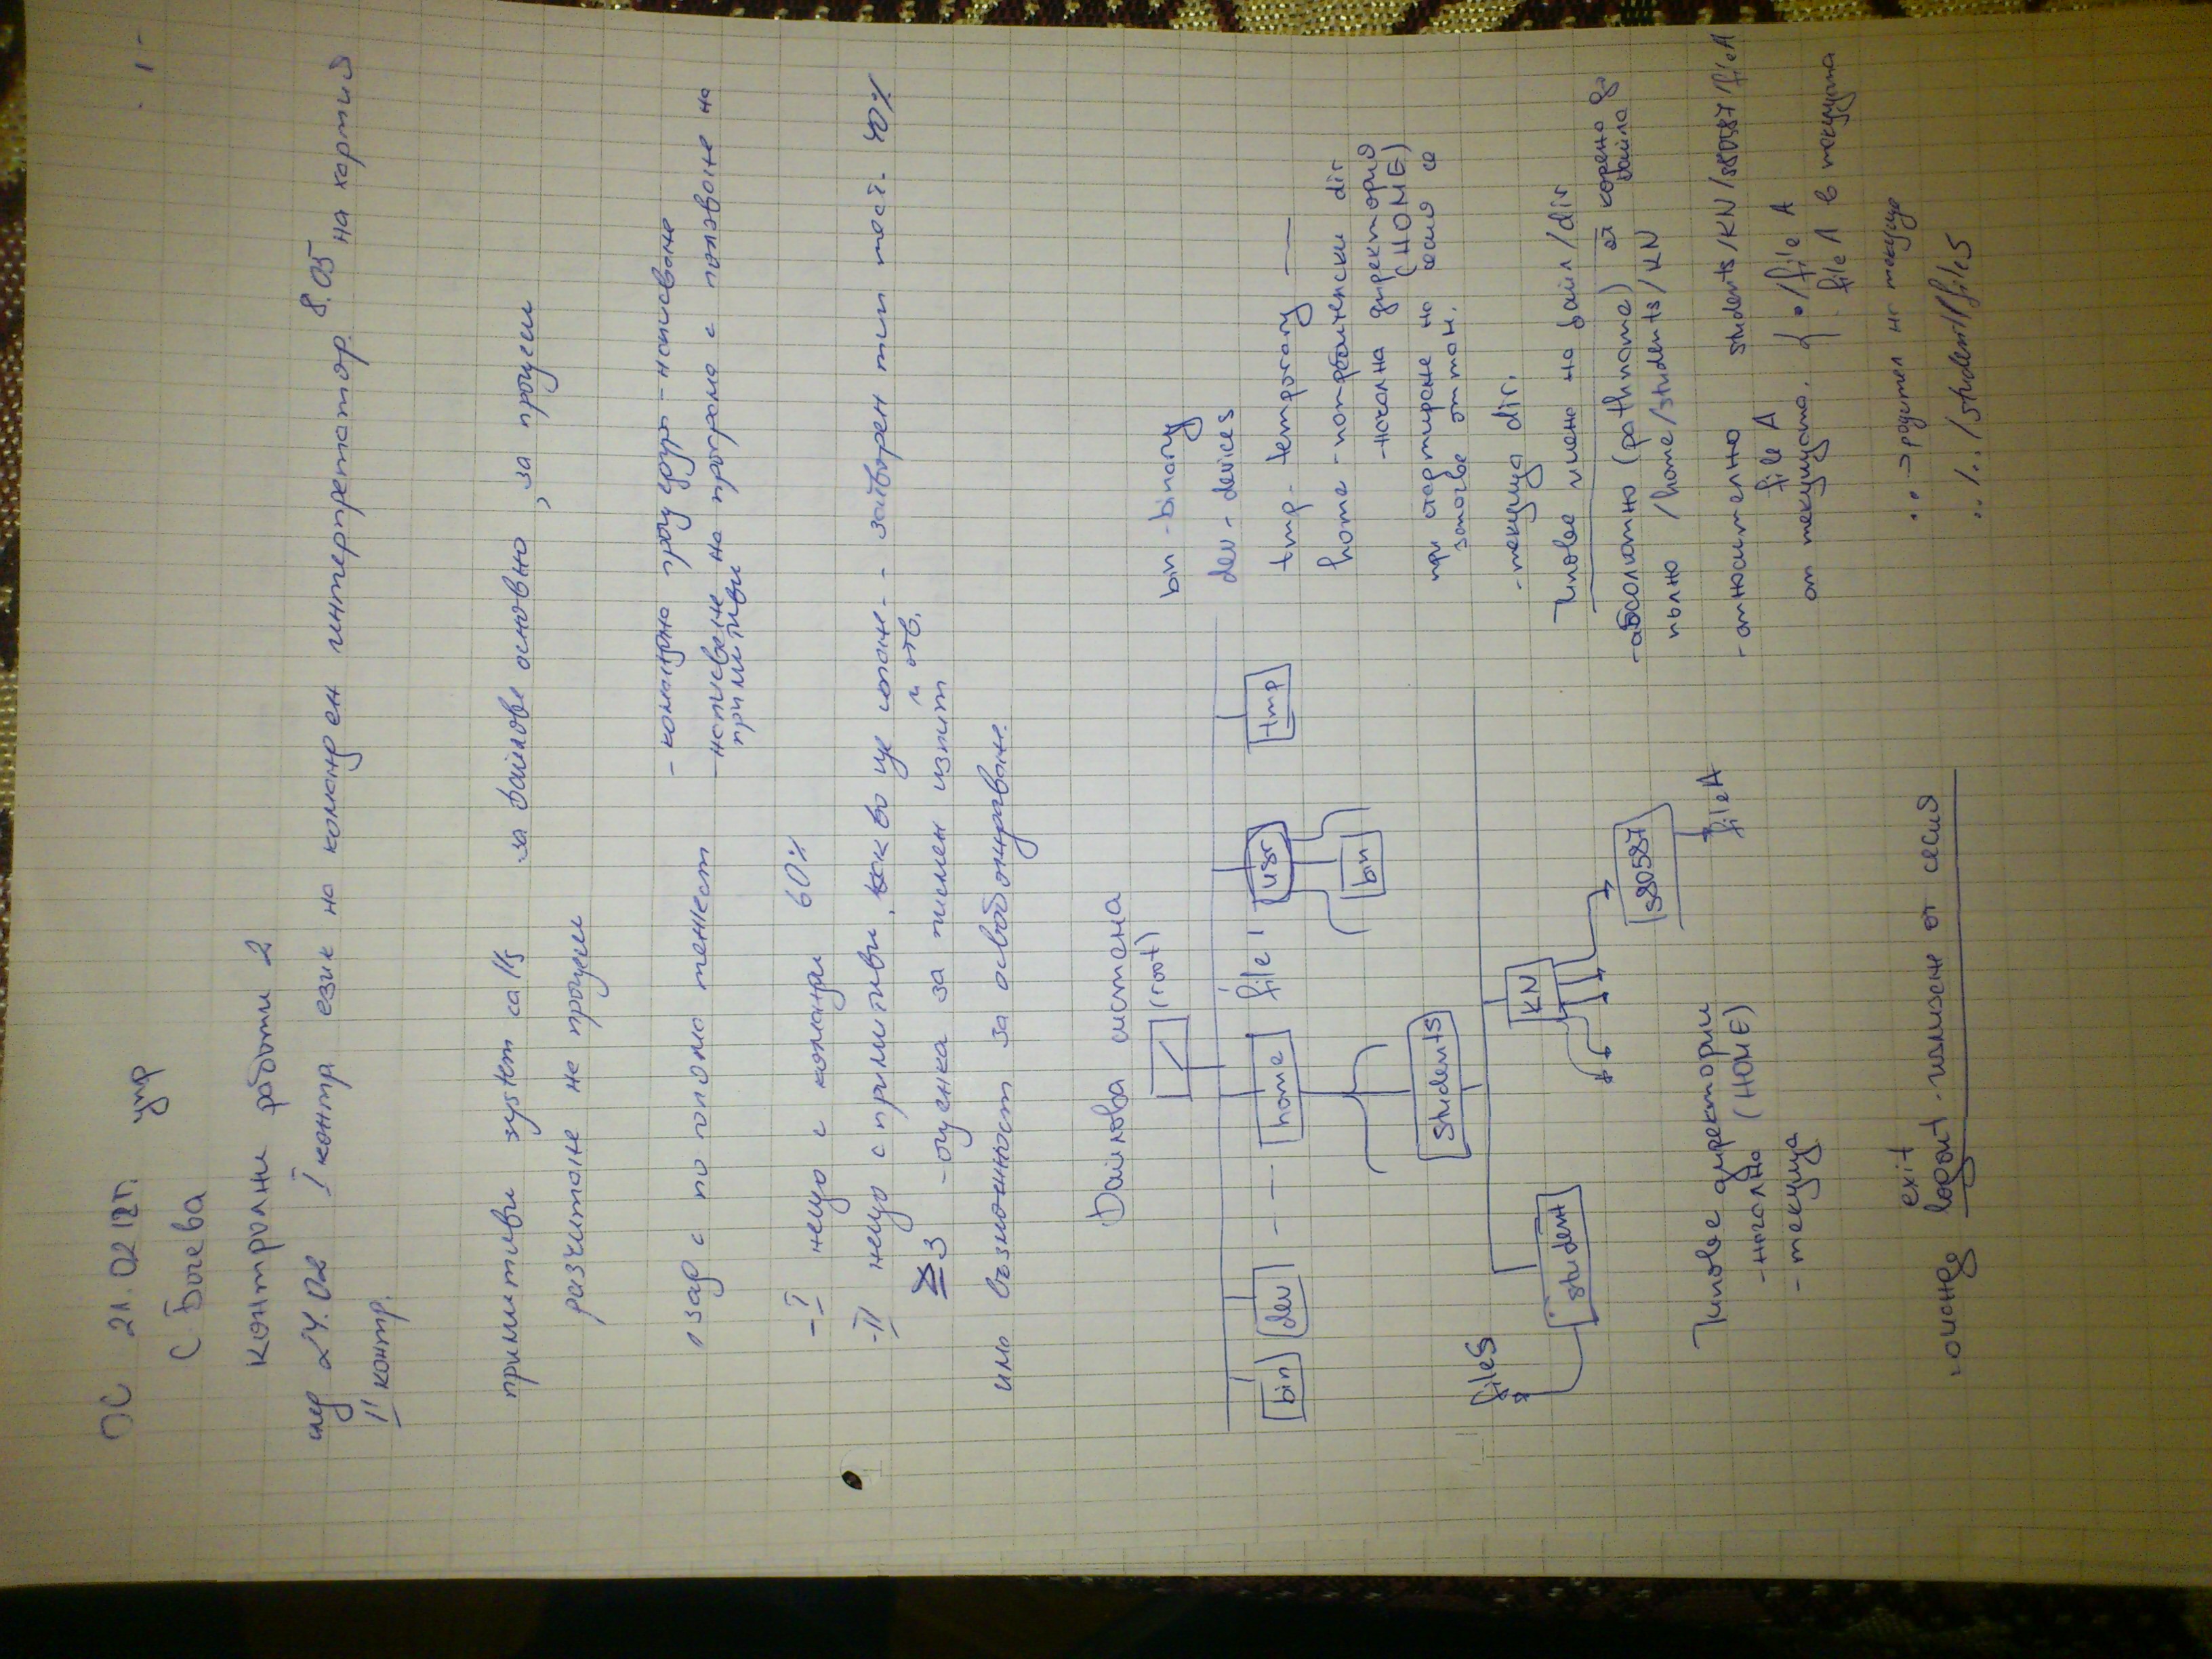 ОС 21.02.12г. упр
С. Боева
Контролни работи 2
I контр. език на команден интерпретатор 8.05 на хартия
II контр.
примитиви system calls за файлове основно, за процеси
разчитане на процеси
1 зад с по голяма тежест
- командна процедура - написване
- написване на програма с ползване на
примитиви
- I нещо с команди 60%
- II нещо с примитиви, какво ще стане - затворен тип тест. 40%
и отв.
≥3 - оценка за писмен изпит
има възможност за освобождаване.
Файлова система
/ (root)
bin dev --- home file 1 usr tmp
bin
students
student KN
file5
s80587
fileA
bin - binary
dev - devices
tmp - temporary
home - потребителски dir
- начална директория
(HOME)
при стартиране на сесия се
- текуща dir.
Типове имена на файл/dir
- абсолютно (pathname) от корена до
файла
пълно /home/students/KN
- относително students/KN/s80587/fileA
file A
от текущата. { ./file A
file A в текущата
.. → родител на текущ
../../student/file5
Типове директории
- начална (HOME)
- текуща
exit
команда logout - излизане от сесия